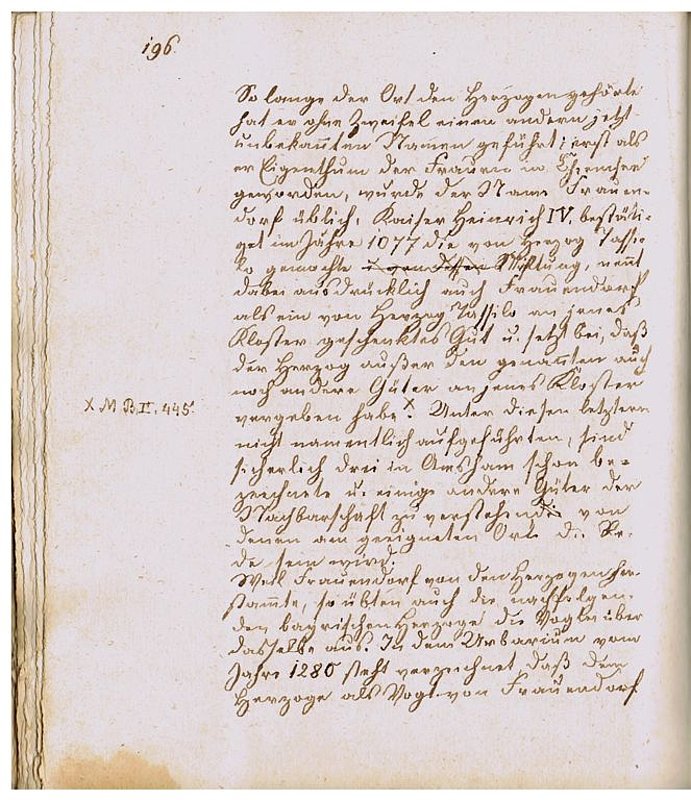 196.
So lange der Ort den Herzogen gehörte
hat er ohne Zweifel einen andern jetzt
unbekannten Namen geführt; erst als
er Eigenthum der Frauen in Chiemsee
geworden, wurde der Name Frauen-
dorf üblich. Kaiser Heinrich IV. bestäti-
get im Jahre 1077 die von Herzog Tassi-
lo gemachte Stiftung, nennt
dabei ausdrücklich auch Frauendorf
als ein von Herzog Tassilo an jenes
Kloster geschenktes Gut u. setzt bei, daß
der Herzog außer den genannten auch
noch andere Güter an jenes Kloster
X M. B. II, 445.
vergeben habe X. Unter diesen letztern
nicht namentlich aufgeführten, sind
sicherlich drei in Amsham schon be-
zeichnete u. einige andere Güter der
Nachbarschaft zu verstehen, von
denen am geeigneten Orte die Re-
de sein wird.
Weil Frauendorf von den Herzogen her-
stammte, so übten auch die nachfolgen-
den bayrischen Herzoge die Vogtei über
dasselbe aus. In dem Urbarium vom
Jahre 1280 steht verzeichnet, daß dem
Herzoge als Vogt von Frauendorf